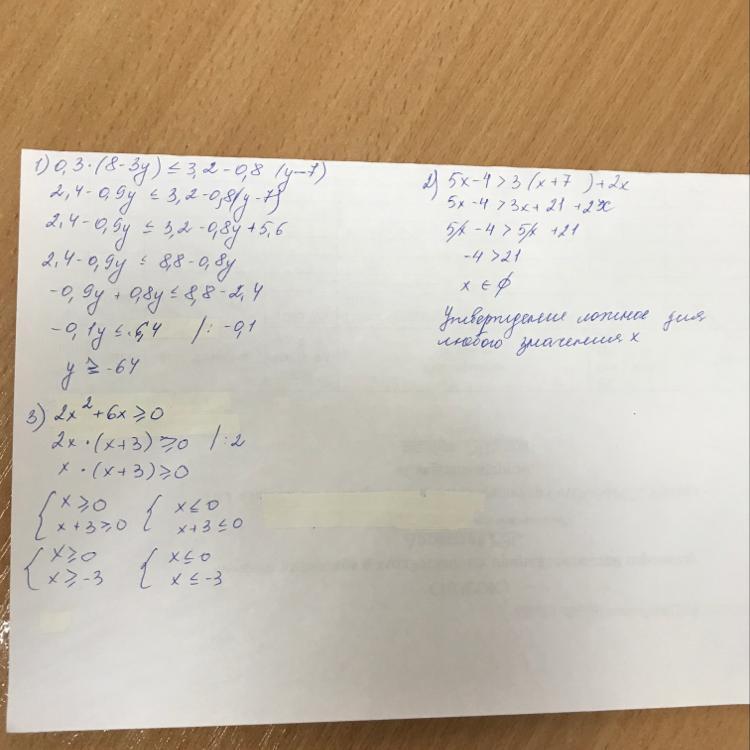 1) 0,3·(8-3y) ≤ 3,2-0,8 (y-7)
2,4-0,9y ≤ 3,2-0,8(y-7)
2,4-0,9y ≤ 3,2-0,8y+5,6
2,4-0,9y ≤ 8,8-0,8y
-0,9y + 0,8y ≤ 8,8-2,4
-0,1y ≤ 6,4 /: -0,1
y ≥ -64
2) 5x-4 > 3 (x+7 ) +2x
5x-4 > 3x+21 +2x
5x-4 > 5x +21
-4 > 21
x ∈ ∅
Утверждение ложное для
любого значения x
3) 2x² +6x ≥ 0
2x·(x+3) ≥ 0 /:2
x·(x+3) ≥ 0
{ x ≥ 0 { x ≤ 0
x+3 ≥ 0 x+3 ≤ 0
{ x ≥ 0 { x ≤ 0
x ≥ -3 x ≤ -3